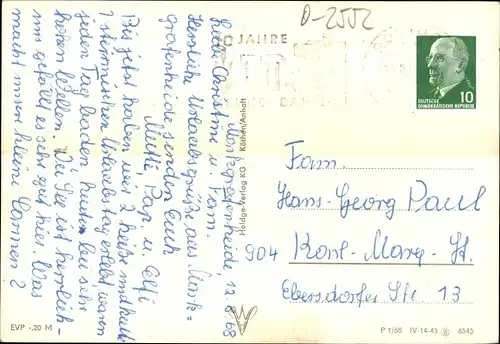 D-2552
JAHRE
DEUTSCHE
DEMOKRATISCHE REPUBLIK
10
Markgrafenheide, 12.8.68
Liebe Christine u. Fam.
Herzliche Urlaubsgrüße aus Mark-
grafenheide, senden Euch
Mutti Pap. u. Elfi
Bis jetzt haben wir 2 heiße und heute
1 stürmischen Urlaubstag erlebt waren
jeden Tag baden, heute bei sehr
hohen Wellen. Die See ist herrlich
uns gefällt es sehr gut hier. Was
macht unsre kleine Carmen?
Heldge-Verlag KG Köthen/Anhalt
Fam.
Hans-Georg Paul
904 Karl-Marx-St.
Ebersdorfer Str 13
EVP -,20 M
P 1/68 IV-14-45 6545